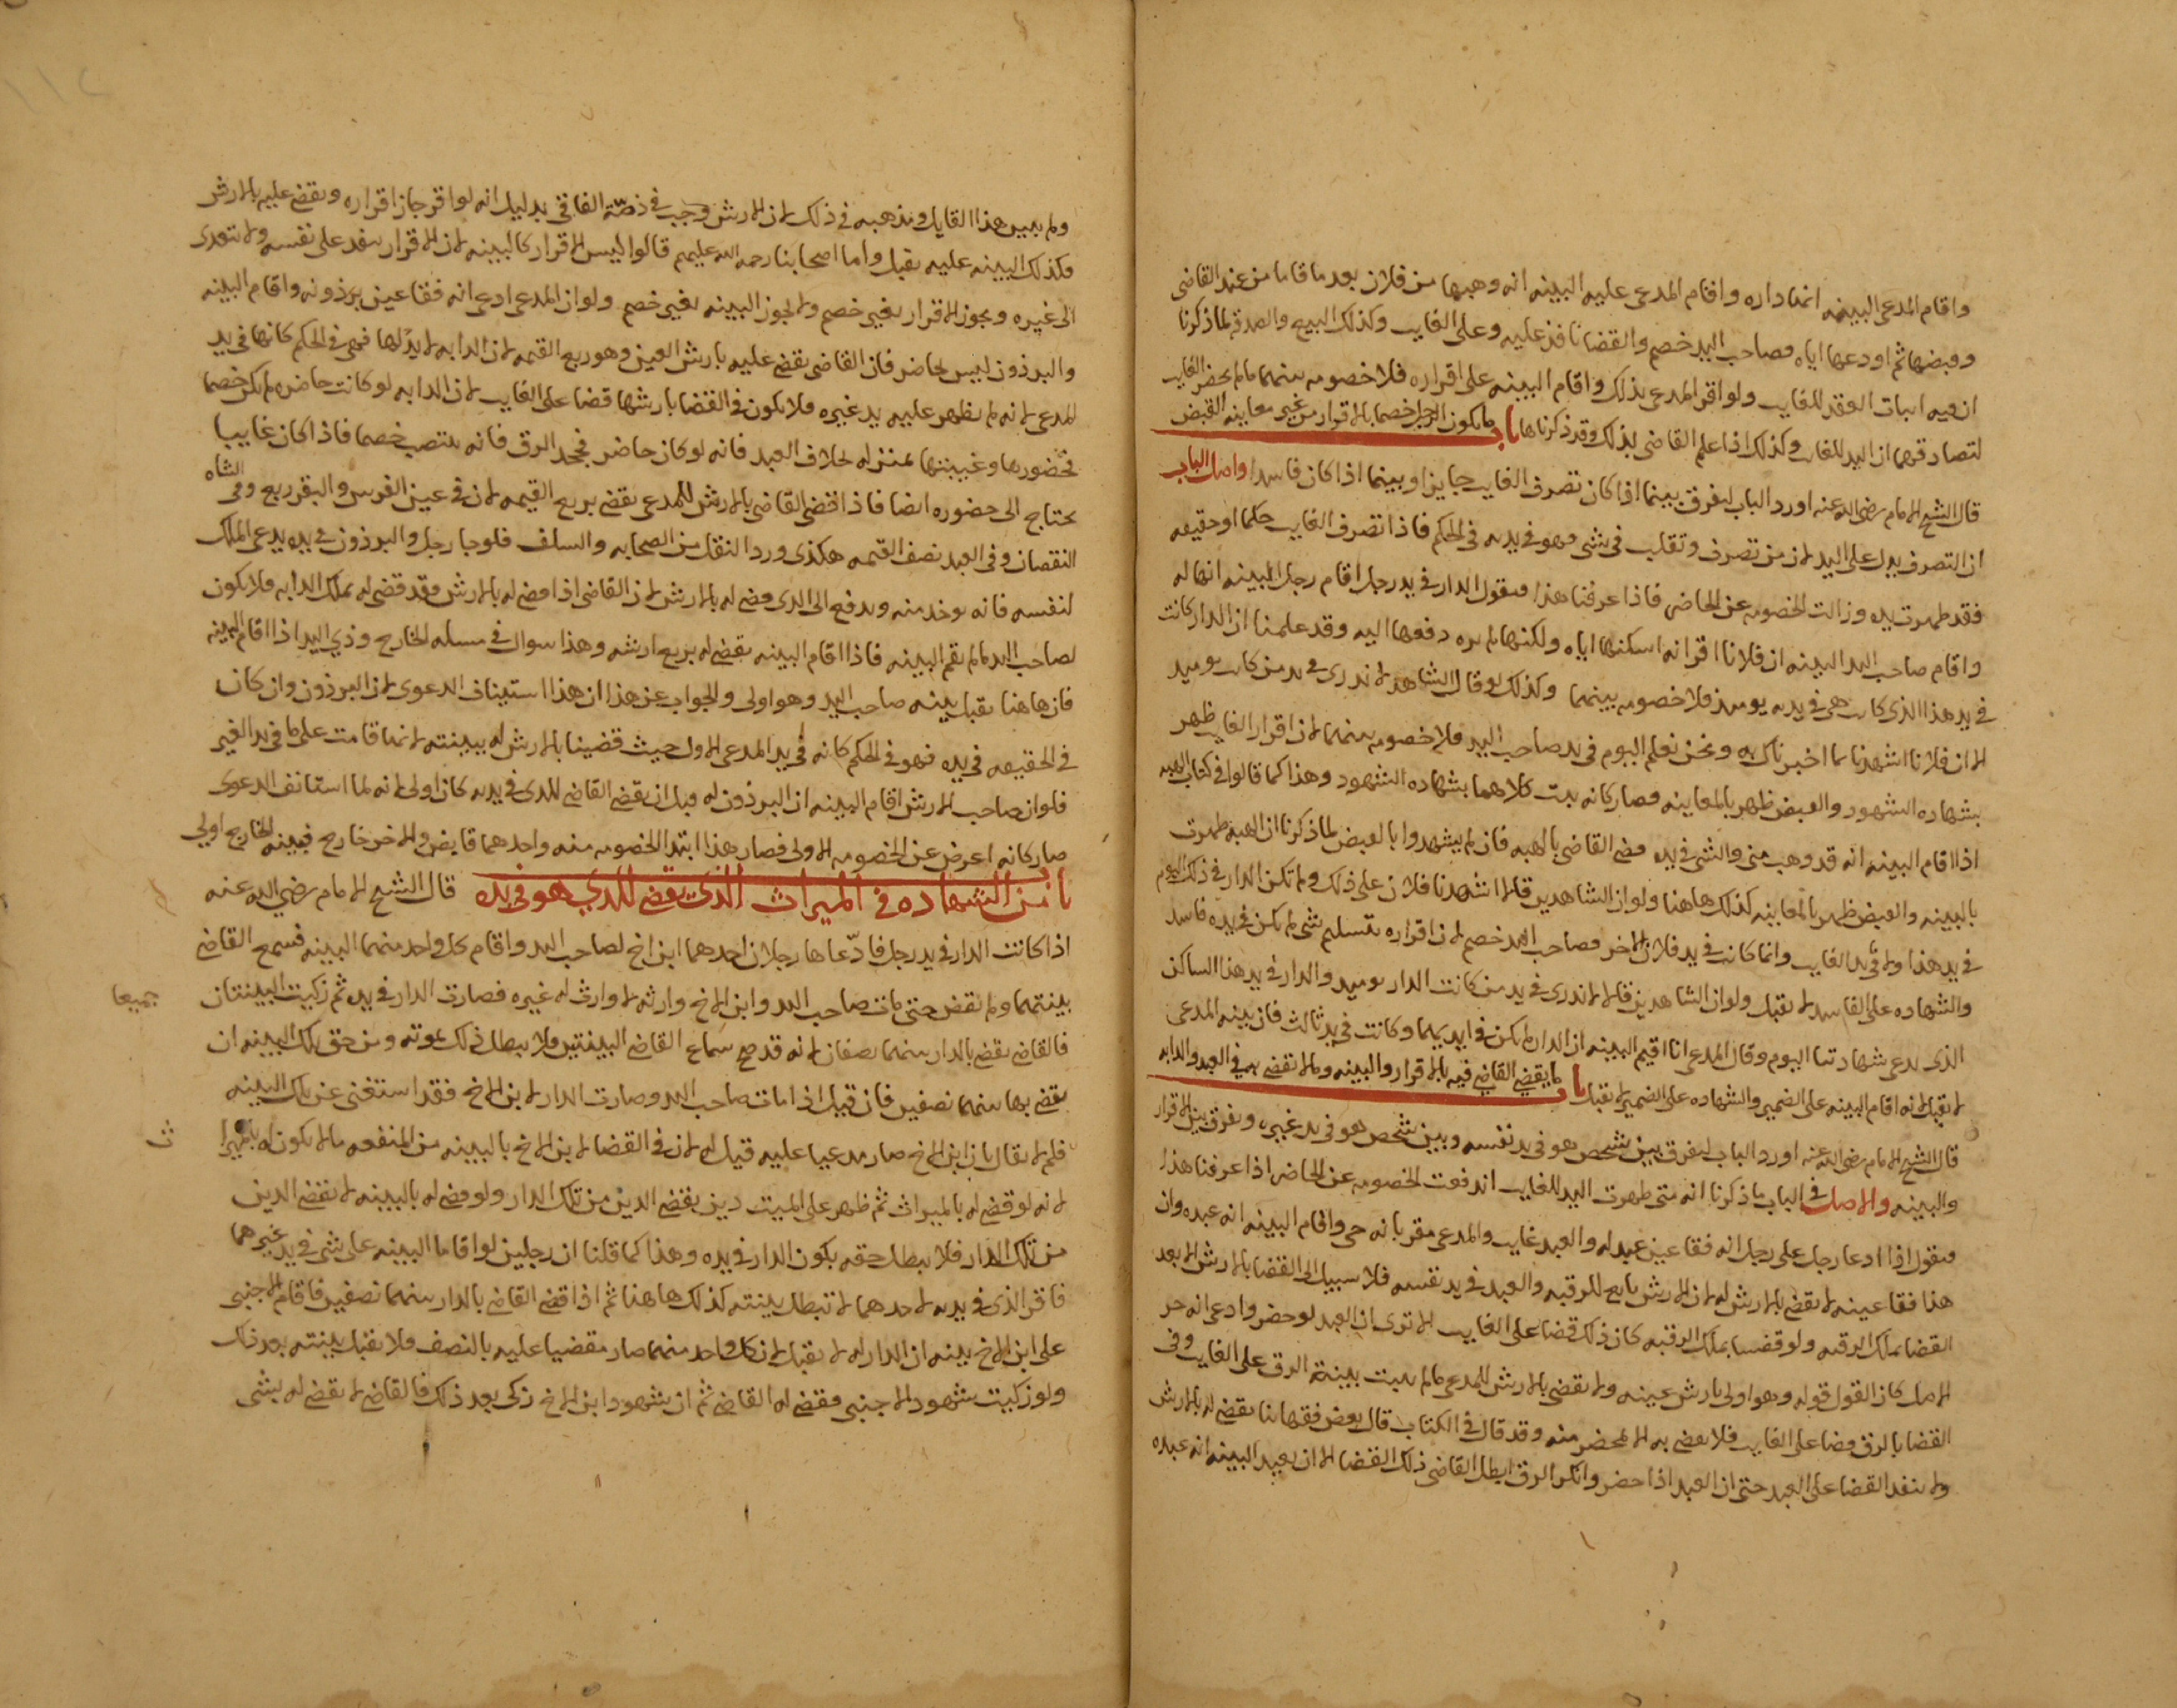 واقام المدعى البينه انها داره واقام المدعى عليه البينه انه وهبها من فلان بعد ما قاما من عند القاضى
وقبضها ثم اودعها اياه فصاحب اليد خصم والقضا نافذ عليه وعلى الغايب وكذلك البيع والصدقه لما ذكرنا
ان فيه اثبات العقد للغايب ولو اقر المدعى بذلك واقام البينه على اقراره فلا خصومه بينهما ما لم يحضر الغايب
لتصادقهما ان اليد للغايب وكذلك اذا علم القاضى بذلك وقد ذكرناها باب ما يكون الرجل خصما بالاقرار من غير معاينه القبض
قال الشيخ الامام رضى الله عنه اورد الباب ليفرق بينما اذا كان تصرف الغايب جايزا وبينما اذا كان فاسدا واصل الباب
ان التصرف يدل على اليد لان من تصرف وتقلب فى شى فهو فى يده فى الحكم فاذا تصرف الغايب حكما او حقيقه
فقد ظهرت يده وزالت الخصومه عن الحاضر فاذا عرفنا هذا فنقول الدار فى يد رجل اقام رجل البينه انها له
واقام صاحب اليد البينه ان فلانا اقر انه اسكنها اياه ولكنها لم يره دفعها اليه وقد علمنا ان الدار كانت
فى يد هذا الذى كانت هى فى يده يوميذ فلا خصومه بينهما وكذلك لو قال الشاهد لا ندرى فى يد من كانت يوميذ
الا ان فلانا اشهدنا بما اخبرناك به ونحن نعلم اليوم فى يد صاحب اليد فلا خصومه بينهما لان اقرار الغايب ظهر
بشهاده الشهود والقبض ظهر بالمعاينه فصار كانه ثبت كلاهما بشهاده الشهود وهذا كما قالوا فى كتاب الهبه
اذا اقام البينه انه قد وهب منى والشى فى يده قضى القاضى بالهبه فان لم يشهدوا بالقبض لما ذكرنا ان الهبه ظهرت
بالبينه والقبض ظهر بالمعاينه كذلك هاهنا ولو ان الشاهدين قالا اشهدنا فلان على ذلك ولم تكن الدار فى ذلك اليوم
فى يد هذا ولا فى يد الغايب وانما كانت فى يد فلان الاخر فصاحب اليد خصم لان اقراره بتسليم شى لم يكن فى يده فاسد
والشهاده على الفاسد لا تقبل ولو ان الشاهدين قالا لا ندرى فى يد من كانت الدار يوميذ والدار فى يد هذا الساكن
الذى يدعى شهادتنا اليوم وقال المدعى انا اقيم البينه ان الدار لم تكن فى ايديهما وكانت فى يد ثالث فان بينه المدعى
لا تقبل لانه اقام البينه على الضمير والشهاده على الضمير لا تقبل باب ما يقضى القاضى فيه بالاقرار والبينه وما لا تقضى به فى العبد والدابه
قال الشيخ الامام رضى الله عنه اورد الباب ليفرق بين شخص هو فى يد نفسه وبين شخص هو فى يد غيره ويفرق بين الاقرار
والبينه والاصل فى الباب ما ذكرنا انه متى ظهرت اليد للغايب اندفعت الخصومه عن الحاضر اذا عرفنا هذا
فنقول اذا ادعا رجل على رجل انه فقا عين عبد له والعبد غايب والمدعى مقر بانه حى واقام البينه انه عبده وان
هذا فقا عينه لا يقضى بالارش له لان الارش تابع للرقبه والعبد فى يد نفسه فلا سبيل الى القضا بالارش الا بعد
القضا بملك الرقبه ولو قضينا بملك الرقبه كان ذلك قضا على الغايب الا ترى ان العبد لو حضر وادعى انه حر
الاصل كان القول قوله وهو اولى بارش عينه ولا يقضى بالارش للمدعى ما لم يثبت بينة الرق على الغايب وفى
القضا بالرق قضا على الغايب فلا يقضى به الا بمحضر منه وقد قال فى الكتاب قال بعض فقهائنا يقضى له بالارش
ولا ينفد القضا على العبد حتى ان العبد اذا حضر وانكر الرق ابطل القاضى ذلك القضا الا ان يعيد البينه انه عبده
ولم يبين هذا القايل ومذهبه فى ذلك لان الارش وجب فى ذمّة الفاقى بدليل انه لو اقر جاز اقراره ويقضى عليه بالارش
فكذلك البينه عليه تقبل واما اصحابنا رحمة الله عليهم قالوا ليس الاقرار كالبينه لان الاقرار ينفد على نفسه ولا يتعدى
الى غيره ويجوز الاقرار بغير خصم ولا يجوز البينه بغير خصم ولو ان المدعى ادعى انه فقا عين برذونه واقام البينه
والبرذون ليس بحاضر فان القاضى يقضى عليه بارش العين وهو ربع القيمه لان الدابه لا يد لها فهى فى الحكم كانها فى يد
المدعى لانه لم يظهر عليه يد غيره فلا يكون فى القضا بارشها قضا على الغايب لان الدابه لو كانت حاضره لم تكن خصما
فحضورها وغيبتها بمنزله بخلاف العبد فانه لو كان حاضر فجحد الرق فانه ينتصب خصما فاذا كان غايبا
يحتاج الى حضوره ايضا فاذا اقضى القاضى بالارش للمدعى يقضى بربع القيمه لان فى عين الفرس والبقر ربع وفى الشاه
النقصان وفى العبد نصف القيمه هكذى ورد النقل من الصحابه والسلف فلو جا رجل والبرذون فى يده يدعى الملك
لنفسه فانه يوخد منه ويدفع الى الذى قضى له بالارش لان القاضى اذا قضى له بالارش فقد قضى له بملك الدابه فلا يكون
لصاحب اليد ما لم يقم البينه فاذا اقام البينه يقضى له بربع ارشه وهذا سوال فى مسله الخارج وذي اليد اذا اقام البينه
فان هاهنا تقبل بينه صاحب اليد وهو اولى والجواب عن هذا ان هذا استيناف الدعوى لان البرذون وان كان
فى الحقيقه فى يده فهو فى الحكم كانه فى يد المدعى الاول حيث قضينا بالارش له ببينته لانها قامت على ما فى يد الغير
فلو ان صاحب الارش اقام البينه ان البرذون له قبل ان يقضى القاضى للذى فى يده كان اولى لانه لما استانف الدعوى
صار كانه اعرض عن الخصومه الاولى فصار هذا ابتدا الخصومه منه واحدهما قابض والاخر خارج فبينه الخارج اولى
باب من الشهاده فى الميراث الذى يقضى للذي هو فى يده قال الشيخ الامام رضي الله عنه
اذا كانت الدار فى يد رجل فادّعاها رجلان احدهما ابن اخ لصاحب اليد واقام كل واحد منهما البينه فسمع القاضى
بينتهما ولم يقض حتى مات صاحب اليد وابن الاخ وارثه لا وارث له غيره فصارت الدار فى يده ثم زكيت البينتان جميعا
فالقاضى يقضى بالدار بينهما نصفان لانه قد صح سماع القاضى البينتين فلا يبطل ذلك بموته ومن حق تلك البينه ان
يقضى بها بينهما نصفين فان قيل اذا مات صاحب اليد وصارت الدار لابن الاخ فقد استغنى عن تلك البينه
فلم لا يقال بان ابن الاخ صار مدعيا عليه قيل له لان فى القضا لابن الاخ بالبينه من المنفعه ما لا يكون له بالميرا ث
لانه لو قضى له بالميراث ثم ظهر على الميت دين يقضى الدين من تلك الدار ولو قضى له بالبينه لا يقضى الدين
من تلك الدار فلا يبطل حقه بكون الدار فى يده وهذا كما قلنا ان رجلين لو اقاما البينه على شى فى يد غيرهما
فاقر الذى فى يده لاحدهما لا تبطل بينته كذلك هاهنا ثم اذا قضى القاضى بالدار بينهما نصفين فاقام الاجنبى
على ابن الاخ بينه ان الدار له لا تقبل لان كل واحد منهما صار مقضيا عليه بالنصف فلا تقبل بينته بعد ذلك
ولو زكيت شهود الاجنبى فقضى له القاضى ثم ان شهود ابن الاخ زكى بعد ذلك فالقاضى لا يقضى له بشى